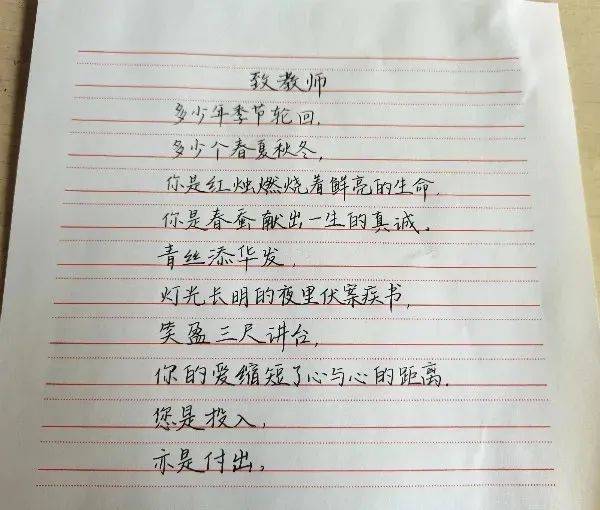 致教师
多少年季节轮回,
多少个春夏秋冬,
你是红烛燃烧着鲜亮的生命.
你是春蚕献出一生的真诚。
青丝添华发,
灯光长明的夜里伏案疾书,
笑盈三尺讲台,
你的爱缩短了心与心的距离.
您是投入,
亦是付出。